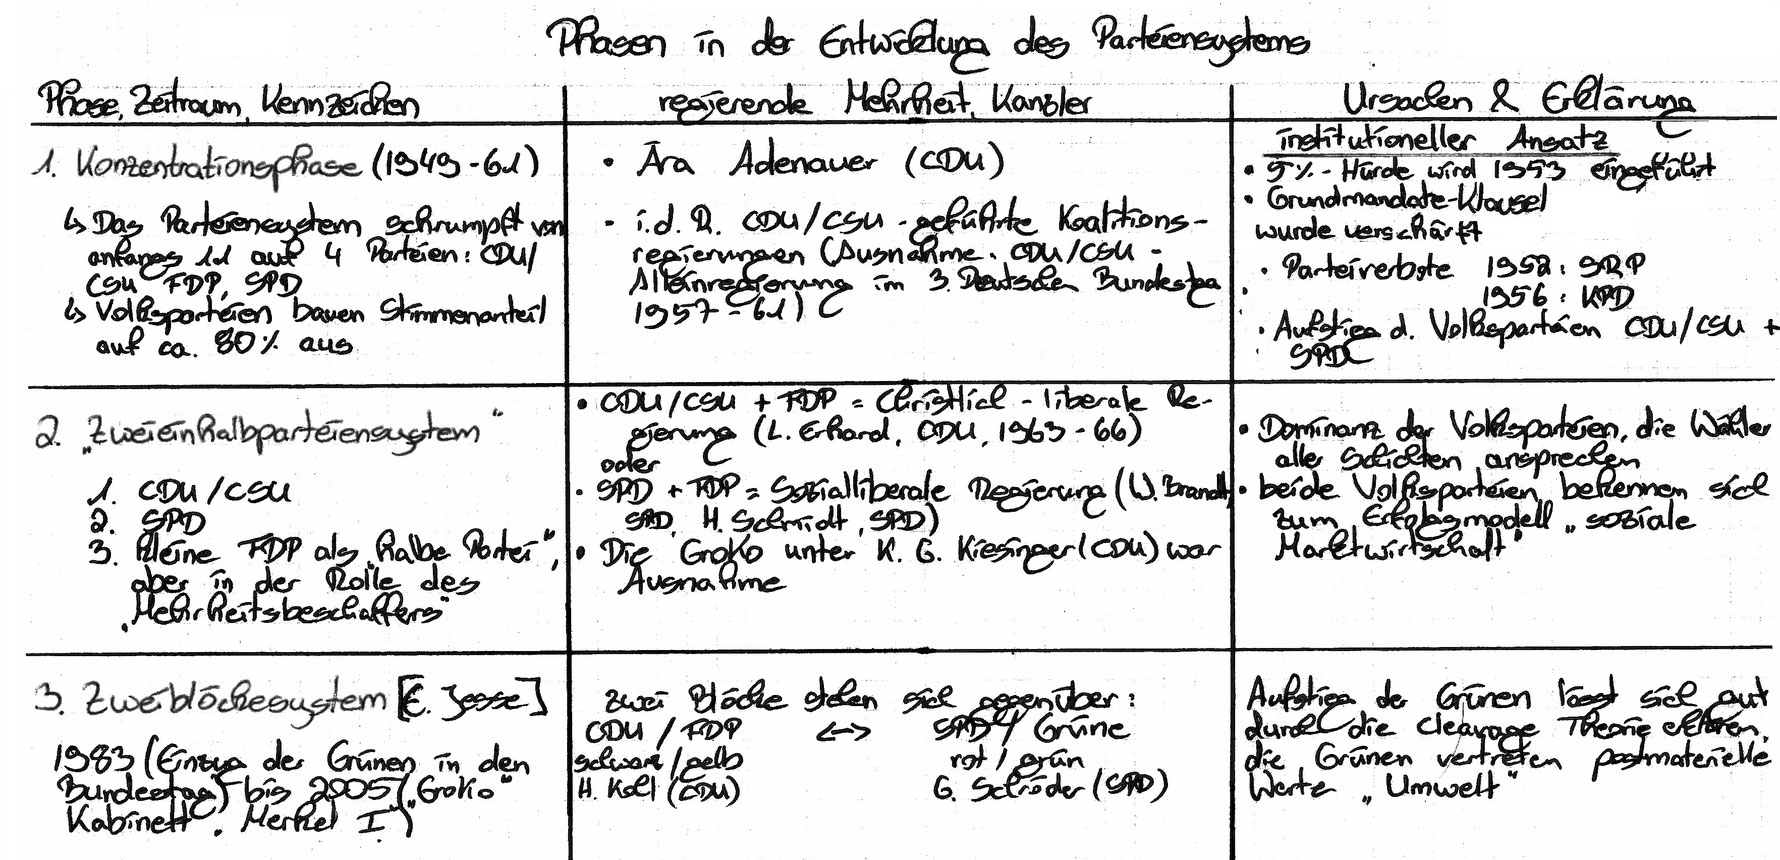 Phasen in der Entwicklung des Parteiensystems
Phase, Zeitraum, Kennzeichen
regierende Mehrheit, Kanzler
Ursachen & Erklärung
1. Konzentrationsphase (1949-61)
↳ Das Parteiensystem schrumpft von
anfangs 11 auf 4 Parteien: CDU/
CSU FDP, SPD
↳ Volksparteien bauen Stimmenanteil
auf ca. 80% aus
• Ära Adenauer (CDU)
- i.d.R. CDU/CSU-geführte Koalitions-
regierungen (Ausnahme. CDU/CSU-
Alleinregierung im 3. Deutschen Bundestag
1957-61)
institutioneller Ansatz
• 5%-Hürde wird 1953 eingeführt
• Grundmandate-Klausel
wurde verschärft
• Parteiverbote 1952: SRP
1956: KPD
• Aufstieg d. Volksparteien CDU/CSU +
SPD
2. „Zweieinhalbparteiensystem“
1. CDU/CSU
2. SPD
3. kleine FDP als „halbe Partei“,
aber in der Rolle des
„Mehrheitsbeschaffers“
• CDU/CSU + FDP = Christlich-liberale Re-
gierung (L. Erhard, CDU, 1963-66)
oder
• SPD + FDP = Sozialliberale Regierung (W. Brandt,
SPD, H. Schmidt, SPD)
• Die GroKo unter K. G. Kiesinger (CDU) war
Ausnahme
• Dominanz der Volksparteien, die Wähler
aller Schichten ansprechen
• beide Volksparteien bekennen sich
zum Erfolgsmodell „soziale
Marktwirtschaft“
3. Zweiblöckesystem [E. Jesse]
1983 (Einzug der Grünen in den
Bundestag) bis 2005 („GroKo“
Kabinett. Merkel I.)
zwei Blöcke stehen sich gegenüber:
CDU / FDP <-> SPD / Grüne
schwarz/gelb rot / grün
H. Kohl (CDU) G. Schröder (SPD)
Aufstieg der Grünen lässt sich gut
durch die cleavage Theorie erklären,
die Grünen vertreten postmaterielle
Werte „Umwelt“